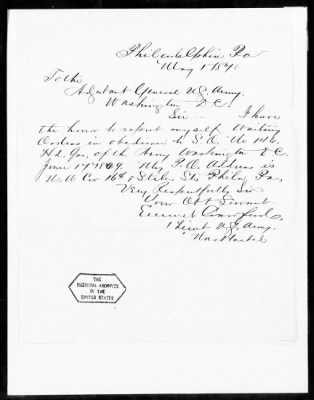 Philadelphia Pa
May 1st 1870
To the
Adjutant General U.S. Army.
Washington D.C.
Sir – I have
the honor to report myself Waiting
Orders in obedience to S.O. No 146.
Hd. Qrs. of the Army Washington D.C.
June 17" 1869. My P.O. Address is
N.W Cor 16th & Sts. Phila Pa.
Very Respectfully Sir
Your Obt Servant
Crawford,
1 Lieut U.S. Army.
Unattached
THE
NATIONAL ARCHIVES
OF THE
UNITED STATES